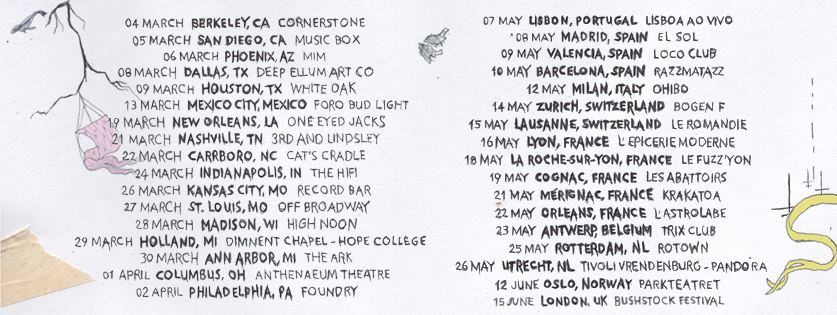 04 MARCH BERKELEY, CA CORNERSTONE
05 MARCH SAN DIEGO, CA MUSIC BOX
06 MARCH PHOENIX, AZ MIM
08 MARCH DALLAS, TX DEEP ELLUM ART CO
09 MARCH HOUSTON, TX WHITE OAK
13 MARCH MEXICO CITY, MEXICO FORO BUD LIGHT
19 MARCH NEW ORLEANS, LA ONE EYED JACKS
21 MARCH NASHVILLE, TN 3RD AND LINDSLEY
22 MARCH CARRBORO, NC CAT'S CRADLE
24 MARCH INDIANAPOLIS, IN THE HIFI
26 MARCH KANSAS CITY, MO RECORD BAR
27 MARCH ST. LOUIS, MO OFF BROADWAY
28 MARCH MADISON, WI HIGH NOON
29 MARCH HOLLAND, MI DIMNENT CHAPEL - HOPE COLLEGE
30 MARCH ANN ARBOR, MI THE ARK
01 APRIL COLUMBUS, OH ANTHENAEUM THEATRE
02 APRIL PHILADELPHIA, PA FOUNDRY
07 MAY LISBON, PORTUGAL LISBOA AO VIVO
08 MAY MADRID, SPAIN EL SOL
09 MAY VALENCIA, SPAIN LOCO CLUB
10 MAY BARCELONA, SPAIN RAZZMATAZZ
12 MAY MILAN, ITALY OHIBO
14 MAY ZURICH, SWITZERLAND BOGEN F
15 MAY LAUSANNE, SWITZERLAND LE ROMANDIE
16 MAY LYON, FRANCE L'EPICERIE MODERNE
18 MAY LA ROCHE-SUR-YON, FRANCE LE FUZZ'YON
19 MAY COGNAC, FRANCE LES ABATTOIRS
21 MAY MÉRIGNAC, FRANCE KRAKATOA
22 MAY ORLEANS, FRANCE L'ASTROLABE
23 MAY ANTWERP, BELGIUM TRIX CLUB
25 MAY ROTTERDAM, NL ROTOWN
26 MAY UTRECHT, NL TIVOLI VRENDENBURG - PANDORA
12 JUNE OSLO, NORWAY PARKTEATRET
15 JUNE LONDON, UK BUSHSTOCK FESTIVAL